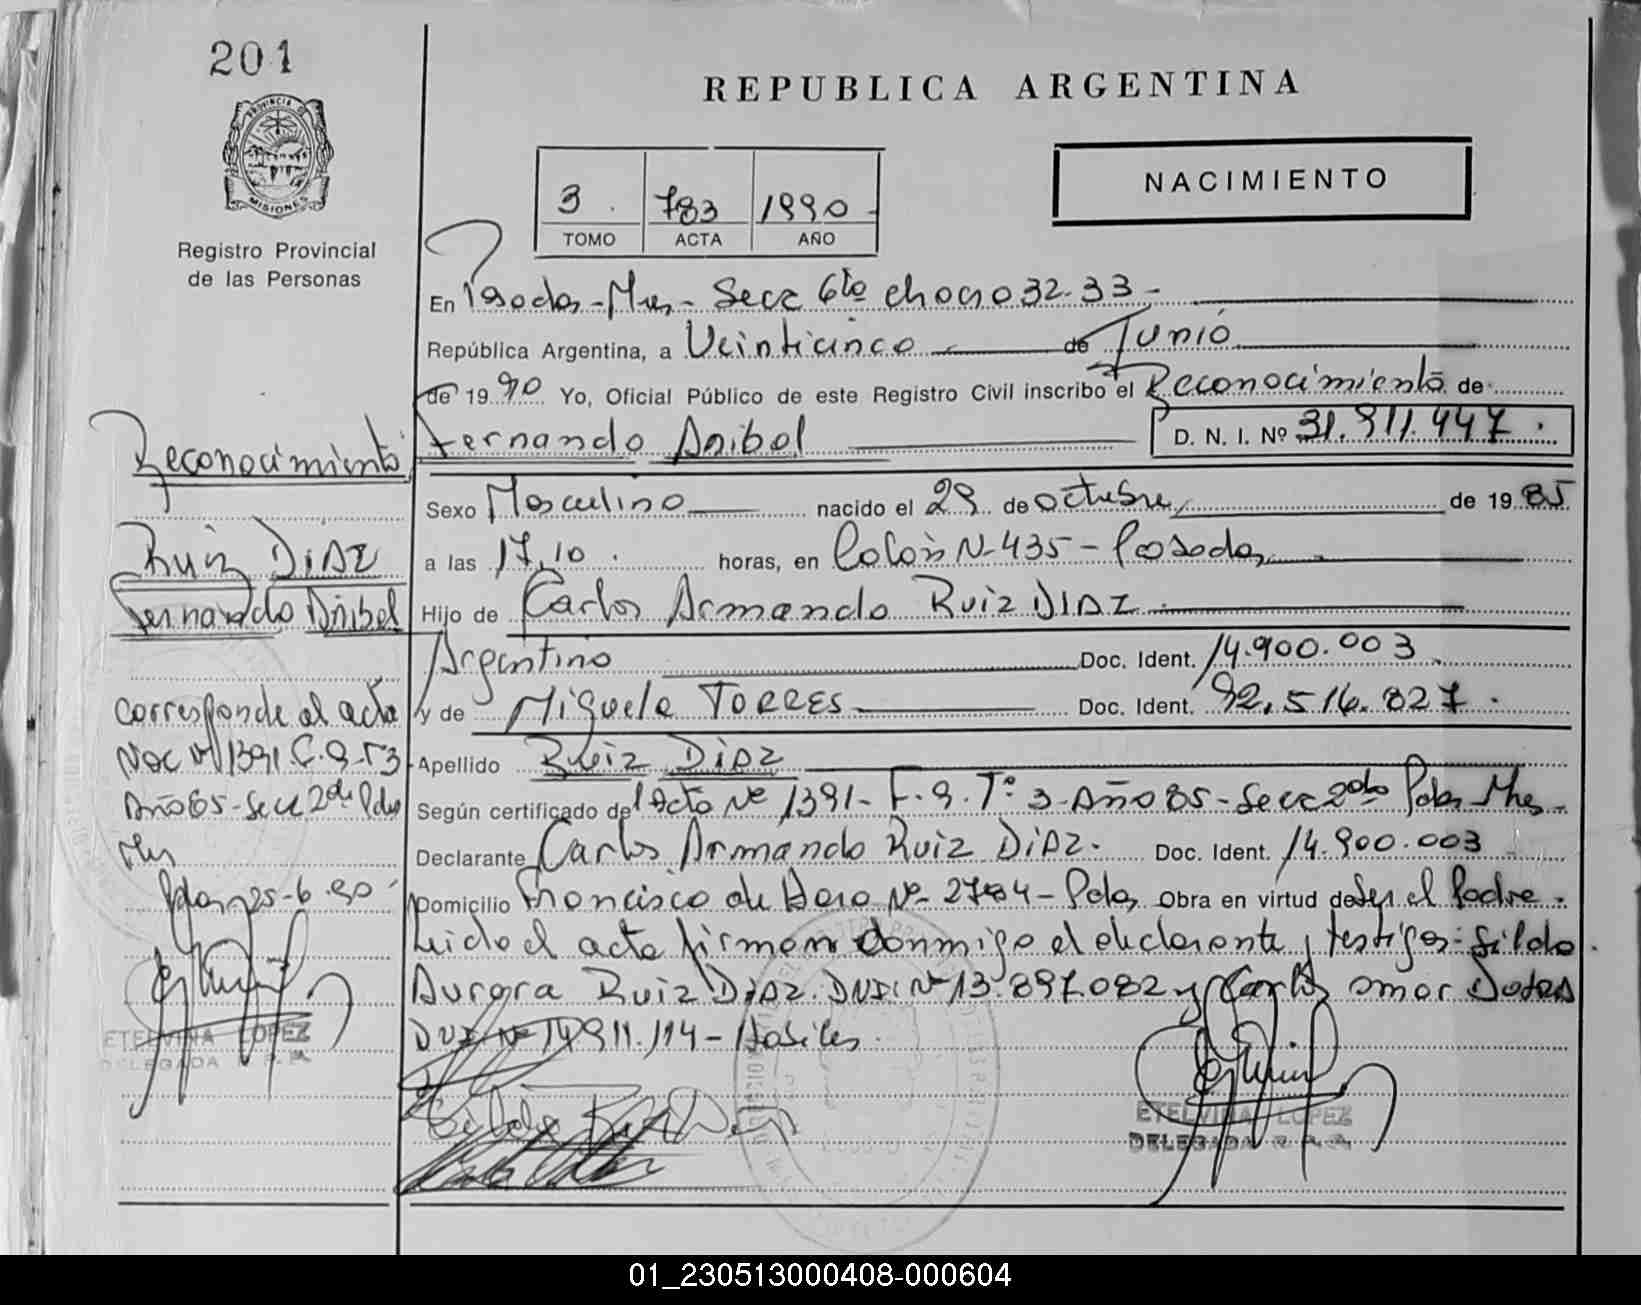 201
REPUBLICA ARGENTINA
PROVINCIA DE
MISIONES
Registro Provincial
de las Personas
NACIMIENTO
3 783 1990
TOMO ACTA AÑO
En Posadas - Mnes - Secc 6ta chacra 32-33 -
República Argentina, a Veinticinco de Junio
de 1990 Yo, Oficial Público de este Registro Civil inscribo el Reconocimiento de
Fernando Anibal D. N. I. Nº 31.911.447.
Sexo Masculino nacido el 29 de octubre de 1985
a las 17,10. horas, en Colón N- 435 - Posadas
Hijo de Carlos Armando Ruiz DIAZ
Argentino Doc. Ident. 14.900.003
y de Miguela TORRES Doc. Ident. 92.516.827.
Apellido Ruiz Diaz
Según certificado del Acta Nº 1391- F.9. Tº 3-Año 85-Secc 2da Pdas Mnes-
Declarante Carlos Armando Ruiz Diaz. Doc. Ident. 14.900.003
Domicilio Francisco de Haro Nº 2784 - Pdas Obra en virtud de Ser el Padre.
Leido el acta firman conmigo el declarante y testigos: Gilda
Aurora Ruiz Diaz. DNI Nº 13.897.082 y Carlos Omar
DNI Nº 14.911.114 - Habiles.
Reconocimiento
Ruiz DIAZ
Fernando Anibal
Corresponde al acta
Nac Nº 1391 F.9-T3
Año 85-Secc 2da Pdas
Mnes
Pdas 25-6-90
ETELVINA LOPEZ
DELEGADA
ETELVINA LOPEZ
DELEGADA
01_230513000408-000604